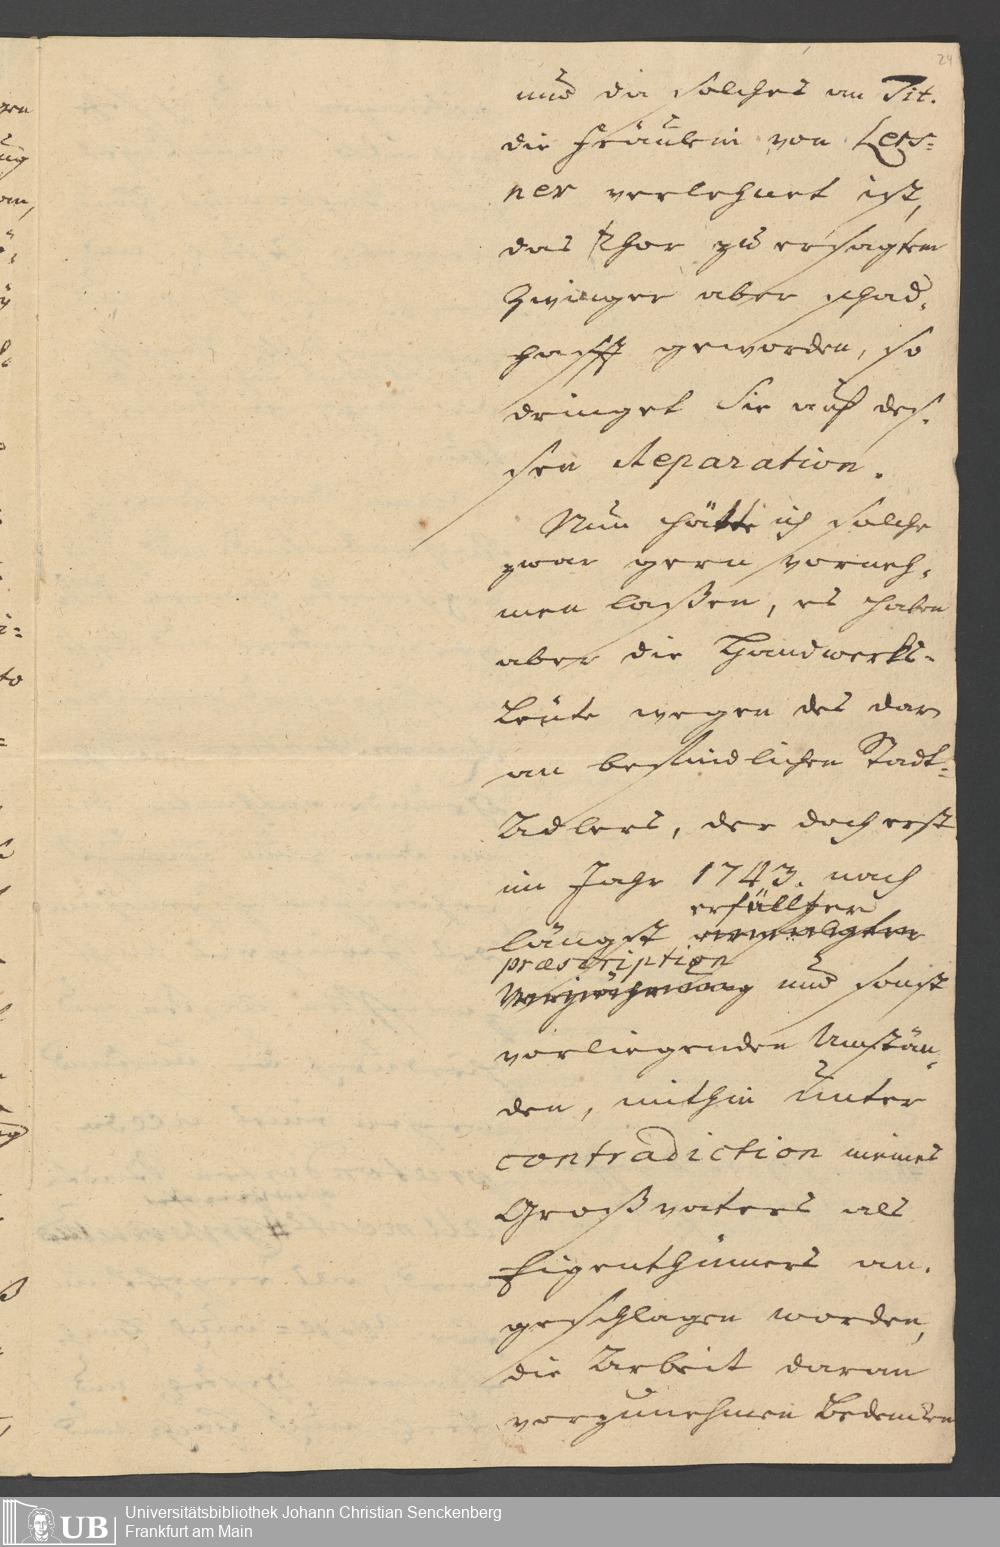 24
und die solches an Tit.
die Fräulein von Lers-
ner verlehnet ist,
das Thor zu ersagtem
Zwinger aber schad-
hafft geworden, so
dringet Sie auf des-
sen Reparation.
Nun hätte ich solche
zwar gern vorneh-
men laßen, es haben
aber die Handwerks-
Leute wegen des dar
an befindlichen Stadt-
Adlers, der doch erst
im Jahr 1743. nach
erfüllter
längst
præscription
Verjährung und sonst
vorliegenden Umstän-
den, mithin unter
contradiction meines
Großvaters als
Eigenthümers an-
geschlagen worden,
die Arbeit daran
vorzunehmen Bedencken
Universitätsbibliothek Johann Christian Senckenberg
UB
Frankfurt am Main